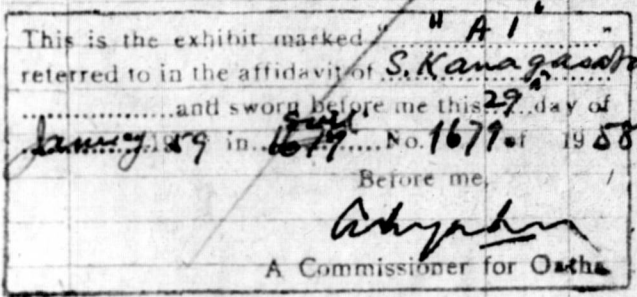 This is the exhibit marked " "A1" "
referred to in the affidavit of S. Kanagasaba
and sworn before me this 29th day of
January 1959 in Suit No. 1679 of 1958
Before me,
A Commissioner for Oaths